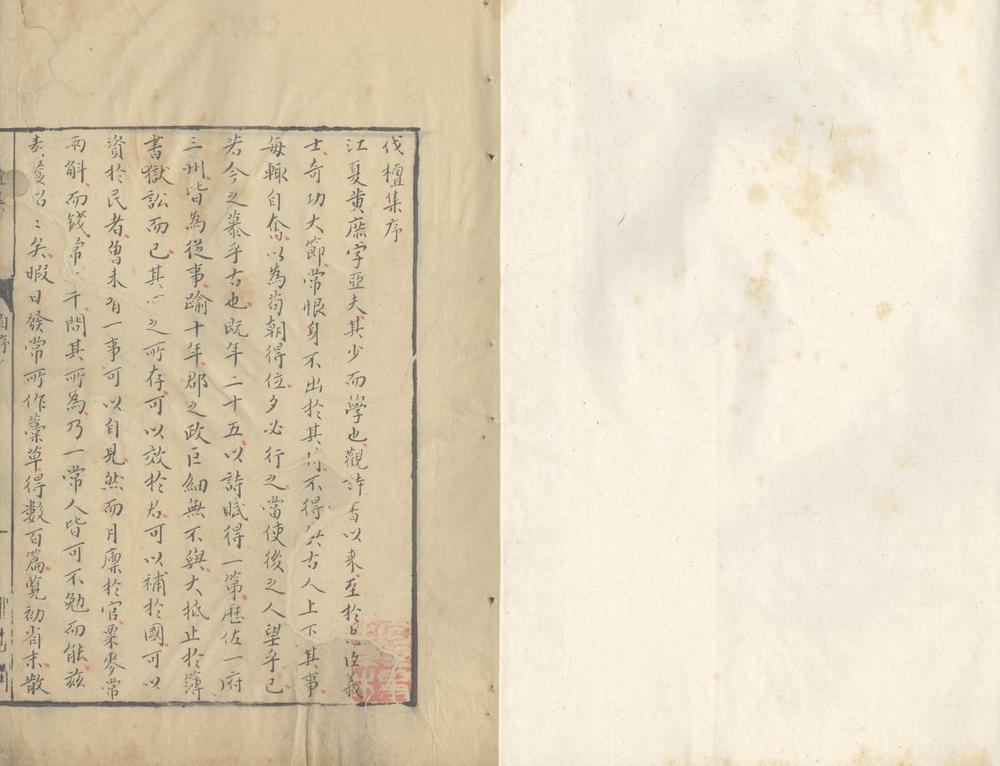 伐檀集序
江夏黄庶字亞夫其少而學也觀詩書以來至於忠臣義
士奇功大節常恨身不出於其時不得與古人上下其事
每輒自奮以為苟朝得位夕必行之當使後之人望乎己
若今之慕乎古也既年二十五以詩賦得一第歷佐一府
三州皆為從事踰十年郡之政巨細無不與大抵止於簿
書獄訟而已其心之所存可以效於君可以補於國可以
資於民者曽未有一事可以自見然而月廪於官粟麥常
兩斛而錢常 千問其所為乃一常人皆可不勉而能茲
素餐昭昭矣暇日發常所作藁草得數百篇覽初省末散
自序